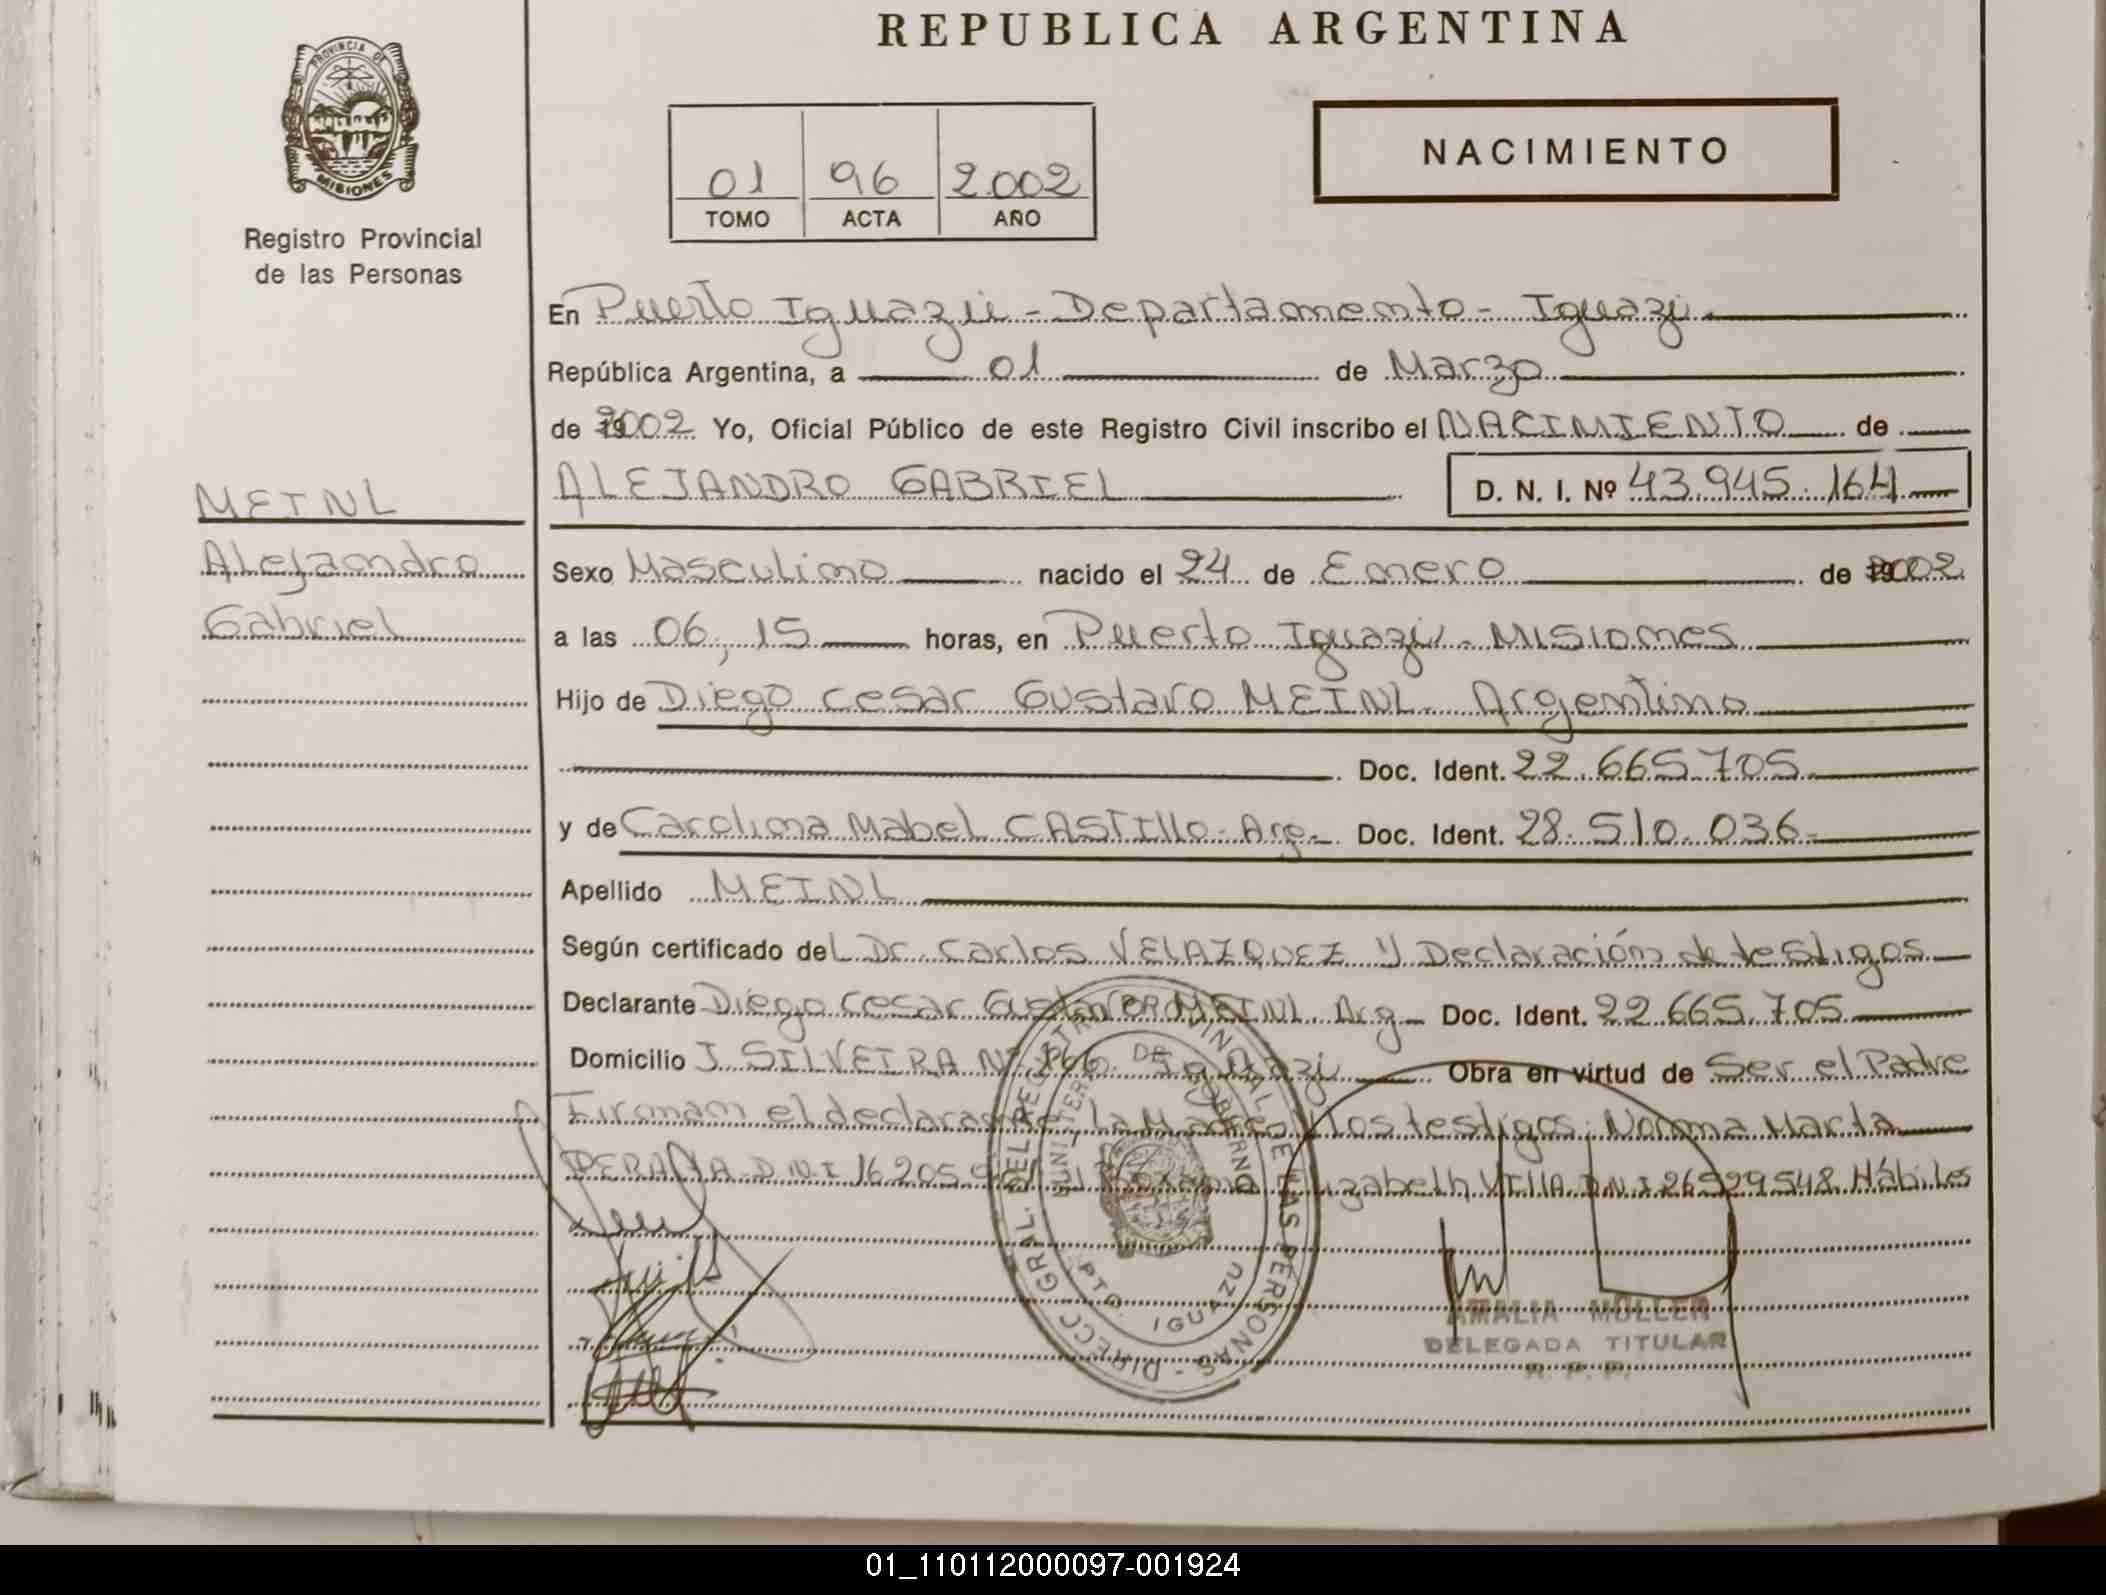 REPUBLICA ARGENTINA
PROVINCIA DE
MISIONES
Registro Provincial
de las Personas
01 96 2002
TOMO ACTA AÑO
NACIMIENTO
En Puerto Iguazú - Departamento - Iguazú
República Argentina, a 01 de Marzo
de 2002 Yo, Oficial Público de este Registro Civil inscribo el NACIMIENTO de
ALEJANDRO GABRIEL D. N. I. Nº 43.945.164
MEINL
Alejandro
Gabriel
Sexo Masculino nacido el 24 de Enero de 2002
a las 06,15 horas, en Puerto Iguazú - Misiones
Hijo de Diego Cesar Gustavo MEINL. Argentino
Doc. Ident. 22.665.705
y de Carolina Mabel CASTIllo - Arg- Doc. Ident. 28.510.036
Apellido MEINL
Según certificado del Dr. Carlos VELAZQUEZ y Declaración de testigos
Declarante Diego Cesar Gustavo MEINL Arg Doc. Ident. 22.665.705
Domicilio J. SILVEIRA Nº Iguazú Obra en virtud de Ser el Padre
Firman el declarante, la Madre y los testigos: Norma Marta
D.N.I 16.205. Elizabeth VIllA D.N.I 26529548 Hábiles
DIRECC. GRAL. DEL REGISTRO PROVINCIAL DE LAS PERSONAS
MINISTERIO DE GOBIERNO
PTO. IGUAZU
AMALIA MÜLLER
DELEGADA TITULAR
R. P. P.
01_110112000097-001924